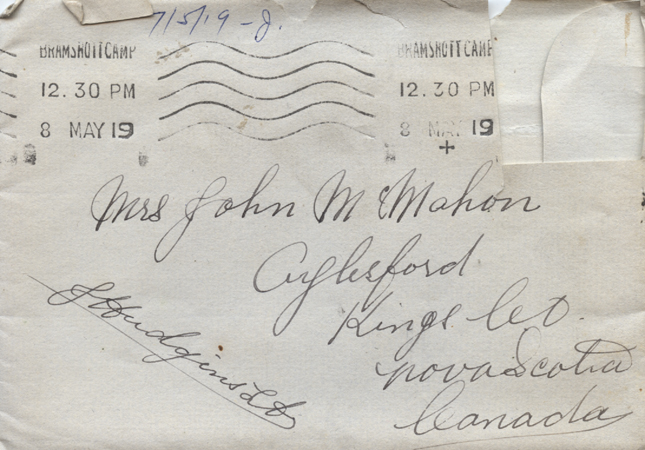 7/5/19 - J.
BRAMSHOTT CAMP
12.30 PM
8 MAY 19
BRAMSHOTT CAMP
12.30 PM
8 MAY 19
Mrs John McMahon
Aylesford
Kings Co.
Nova Scotia
Canada
Hudgins Lt